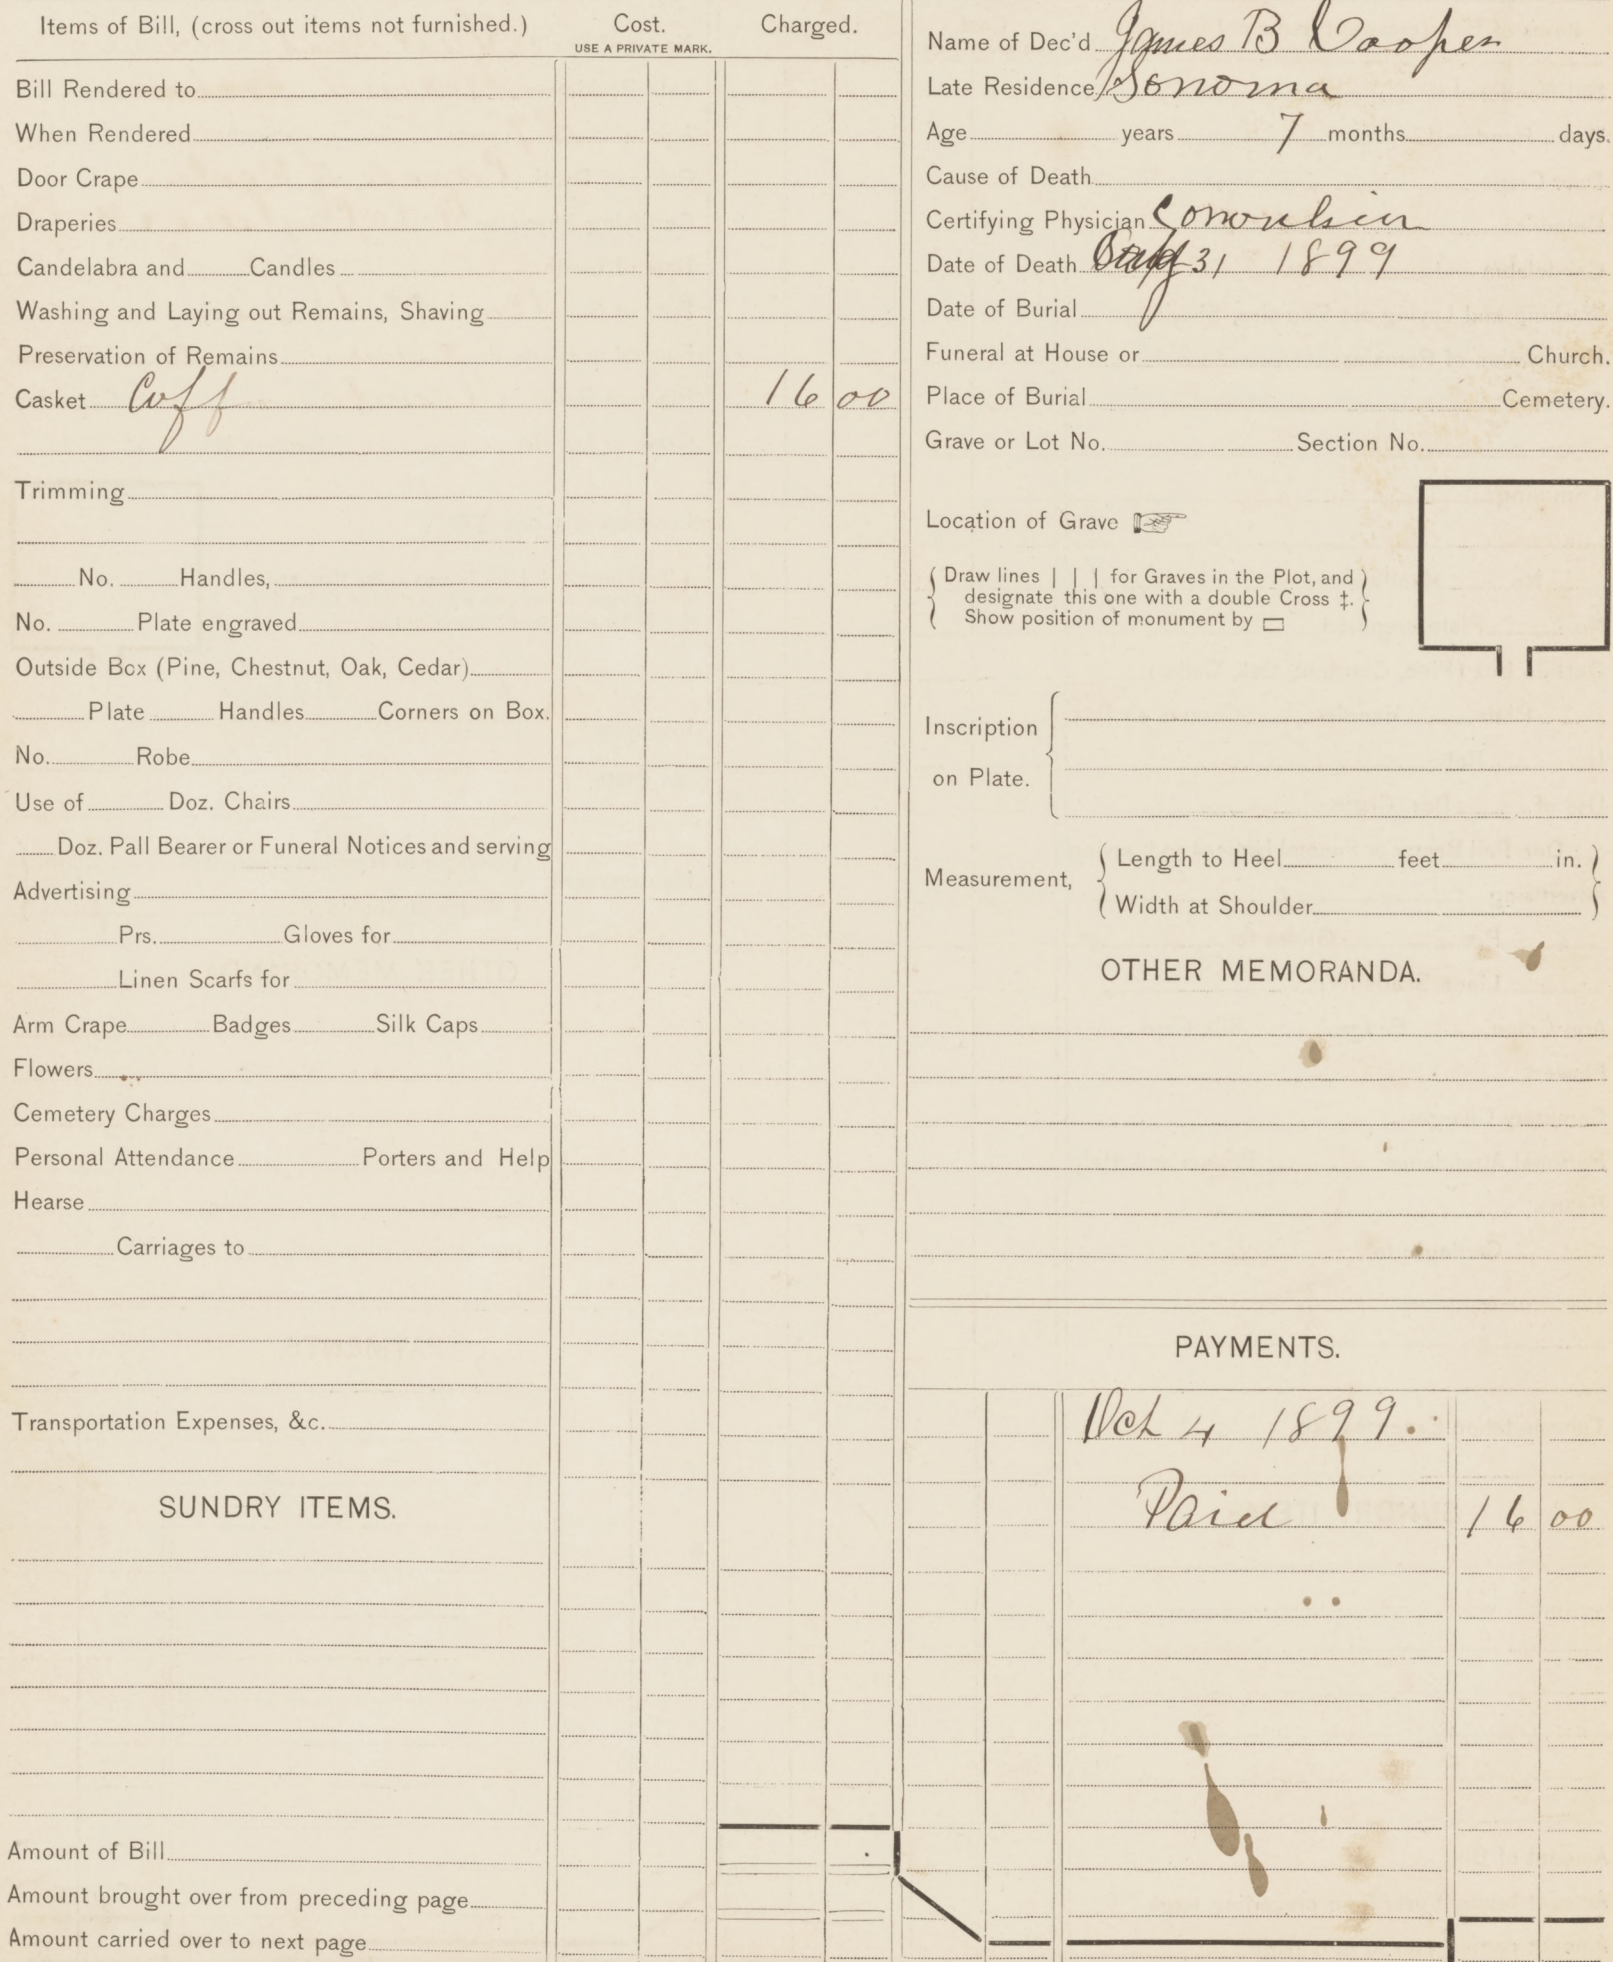 Items of Bill, (cross out items not furnished.) Cost. Charged.
USE A PRIVATE MARK.
Bill Rendered to
When Rendered
Door Crape
Draperies
Candelabra and Candles
Washing and Laying out Remains, Shaving
Preservation of Remains
Casket Coff 16 00
Trimming
No. Handles,
No. Plate engraved
Outside Box (Pine, Chestnut, Oak, Cedar)
Plate Handles Corners on Box.
No. Robe
Use of Doz. Chairs
Doz. Pall Bearer or Funeral Notices and serving
Advertising
Prs. Gloves for
Linen Scarfs for
Arm Crape Badges Silk Caps
Flowers
Cemetery Charges
Personal Attendance Porters and Help
Hearse
Carriages to
Transportation Expenses, &c.
SUNDRY ITEMS.
Amount of Bill
Amount brought over from preceding page
Amount carried over to next page
Name of Dec'd James B Cooper
Late Residence Sonoma
Age years 7 months days.
Cause of Death
Certifying Physician
Date of Death 31 1899
Date of Burial
Funeral at House or Church.
Place of Burial Cemetery.
Grave or Lot No. Section No.
Location of Grave
Draw lines | | | for Graves in the Plot, and
designate this one with a double Cross ‡.
Show position of monument by
Inscription
on Plate.
Measurement,
Length to Heel feet in.
Width at Shoulder
OTHER MEMORANDA.
PAYMENTS.
Oct 4 1899.
Paid 16 00